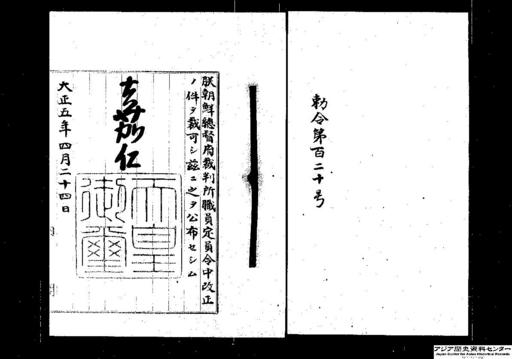 勅令第百二十号
朕朝鮮總督府裁判所職員定員令中改正
ノ件ヲ裁可シ茲ニ之ヲ公布セシム
嘉仁
天皇御璽
大正五年四月二十四日
アジア歴史資料センター
Japan Center for Asian Historical Records